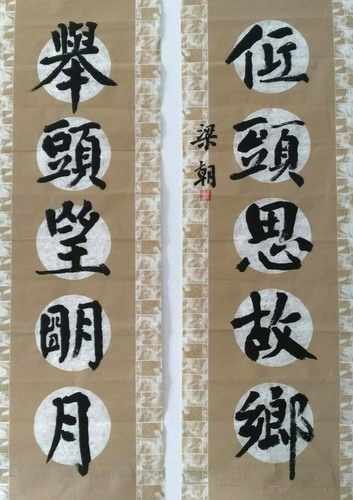 舉頭望明月
低頭思故鄉
梁朝